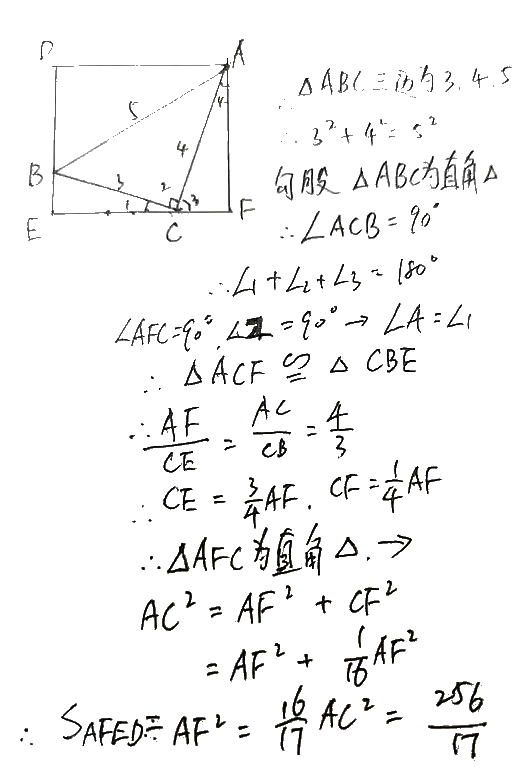 D A
∴ △ABC三边为3.4.5
5
4
∴ 3²+4²=5²
B 3 2
勾股 △ABC为直角△
1 3
E C F
∴∠ACB=90°
∴∠1+∠2+∠3=180°
∠AFC=90°,∠2=90°→∠A=∠1
∴ △ACF ≌ △CBE
∴ AF/CE = AC/CB = 4/3
∴ CE = 3/4 AF. CF = 1/4 AF
∴△AFC为直角△.→
AC² = AF² + CF²
= AF² + 1/16 AF²
∴ SAFED = AF² = 16/17 AC² = 256/17